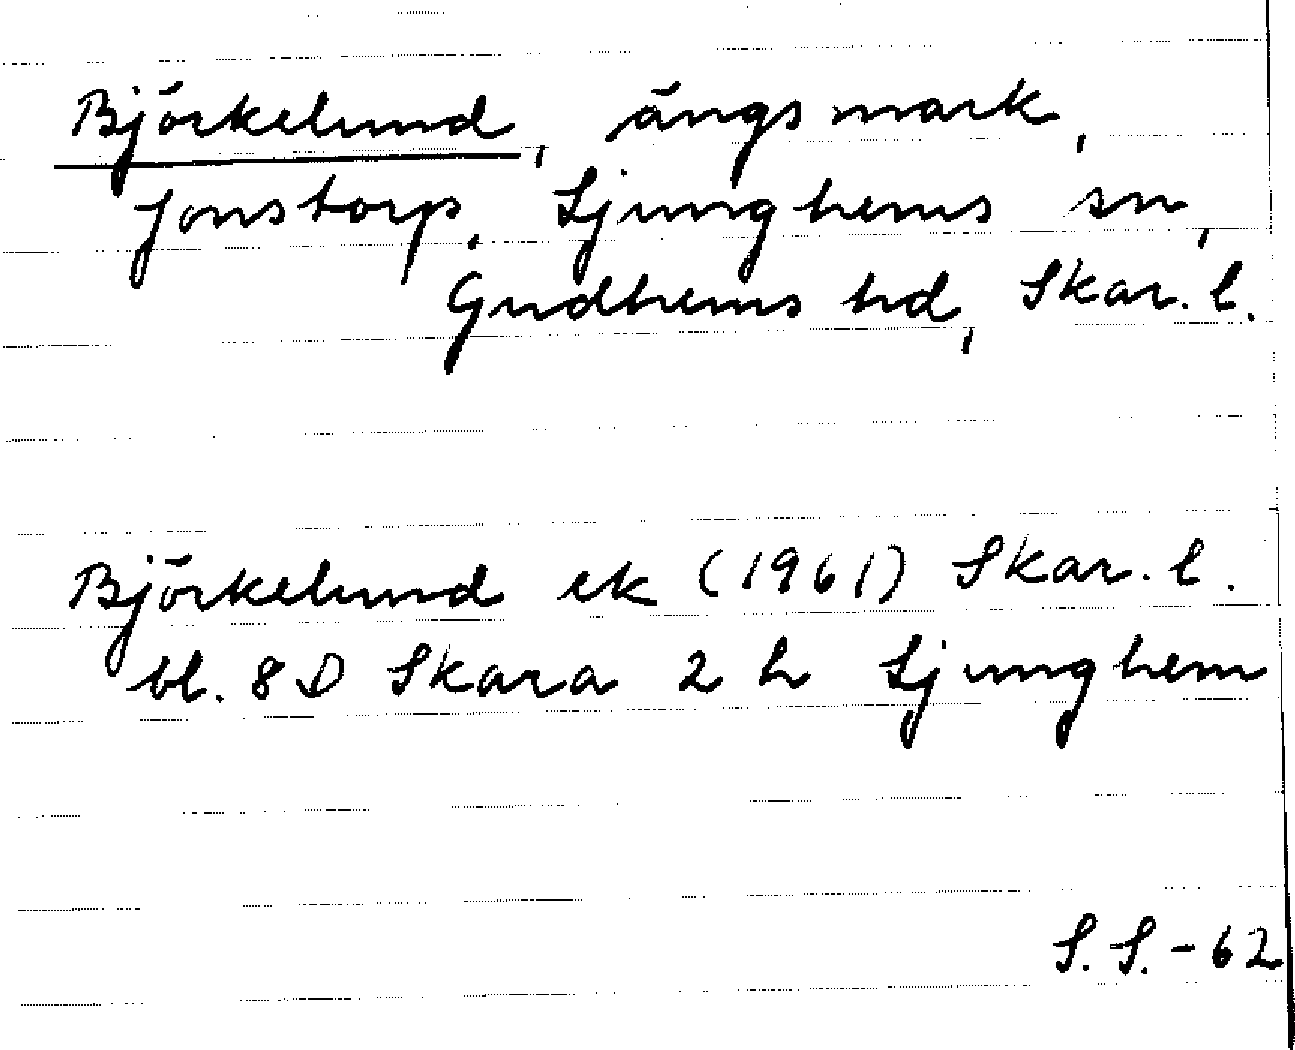 Björkelund, ängsmark,
Jonstorp, Ljunghems sn,
Gudhems hd, Skar. l.
Björkelund ek (1961) Skar. l.
bl. 8D Skara 2 h Ljunghem
S. S. - 62